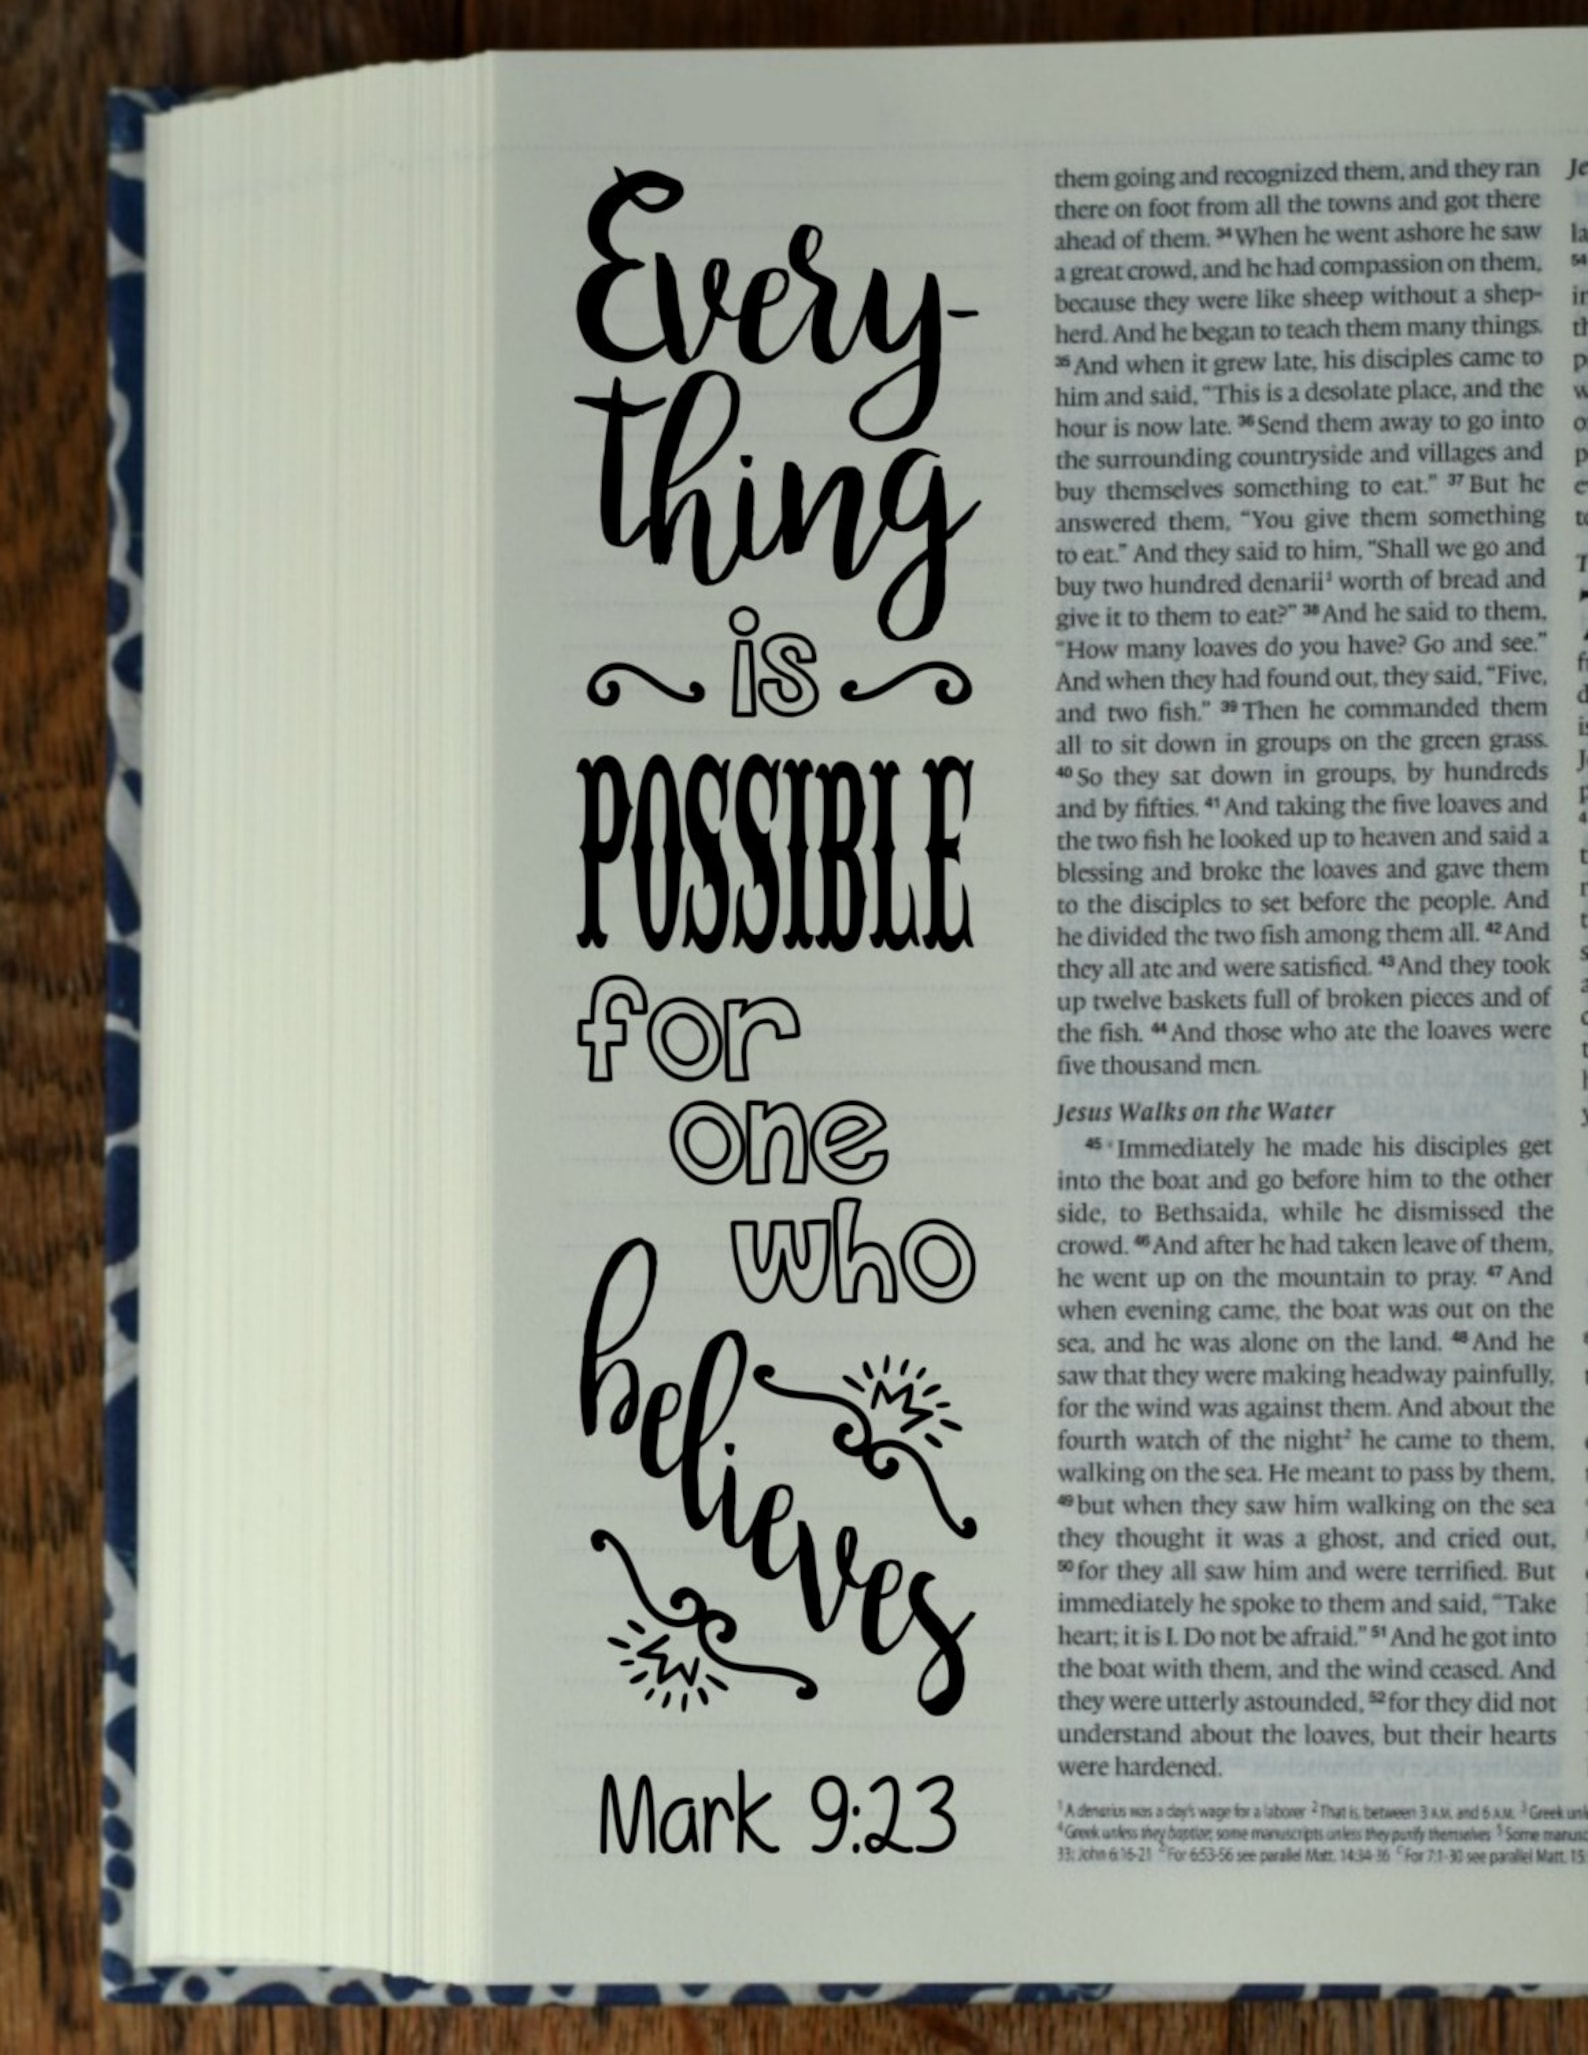 Every-
thing
is
POSSIBLE
for
one
who
believes
Mark 9:23
them going and recognized them, and they ran
there on foot from all the towns and got there
ahead of them. ³⁴ When he went ashore he saw
a great crowd, and he had compassion on them,
because they were like sheep without a shep-
herd. And he began to teach them many things.
³⁵ And when it grew late, his disciples came to
him and said, “This is a desolate place, and the
hour is now late. ³⁶ Send them away to go into
the surrounding countryside and villages and
buy themselves something to eat.” ³⁷ But he
answered them, “You give them something
to eat.” And they said to him, “Shall we go and
buy two hundred denarii¹ worth of bread and
give it to them to eat?” ³⁸ And he said to them,
“How many loaves do you have? Go and see.”
And when they had found out, they said, “Five,
and two fish.” ³⁹ Then he commanded them
all to sit down in groups on the green grass.
⁴⁰ So they sat down in groups, by hundreds
and by fifties. ⁴¹ And taking the five loaves and
the two fish he looked up to heaven and said a
blessing and broke the loaves and gave them
to the disciples to set before the people. And
he divided the two fish among them all. ⁴² And
they all ate and were satisfied. ⁴³ And they took
up twelve baskets full of broken pieces and of
the fish. ⁴⁴ And those who ate the loaves were
five thousand men.
Jesus Walks on the Water
⁴⁵ Immediately he made his disciples get
into the boat and go before him to the other
side, to Bethsaida, while he dismissed the
crowd. ⁴⁶ And after he had taken leave of them,
he went up on the mountain to pray. ⁴⁷ And
when evening came, the boat was out on the
sea, and he was alone on the land. ⁴⁸ And he
saw that they were making headway painfully,
for the wind was against them. And about the
fourth watch of the night² he came to them,
walking on the sea. He meant to pass by them,
⁴⁹ but when they saw him walking on the sea
they thought it was a ghost, and cried out,
⁵⁰ for they all saw him and were terrified. But
immediately he spoke to them and said, “Take
heart; it is I. Do not be afraid.” ⁵¹ And he got into
the boat with them, and the wind ceased. And
they were utterly astounded, ⁵² for they did not
understand about the loaves, but their hearts
were hardened.
¹ A denarius was a day's wage for a laborer ² That is, between 3 A.M. and 6 A.M. ³ Greek
⁴ Greek unless they baptize; some manuscripts unless they purify themselves ⁵ Some
33; John 6:16-21 For 6:53-56 see parallel Matt. 14:34-36 For 7:1-30 see parallel Matt. 15: